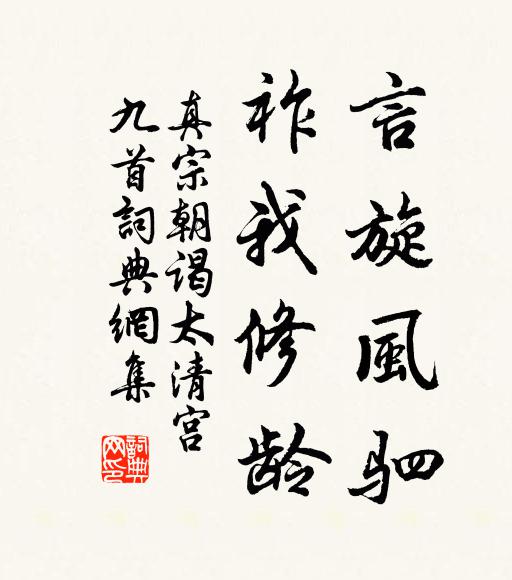 言旋風驷
祚我修龄
真宗朝谒太清宫
九首詞典網集
詞典网印